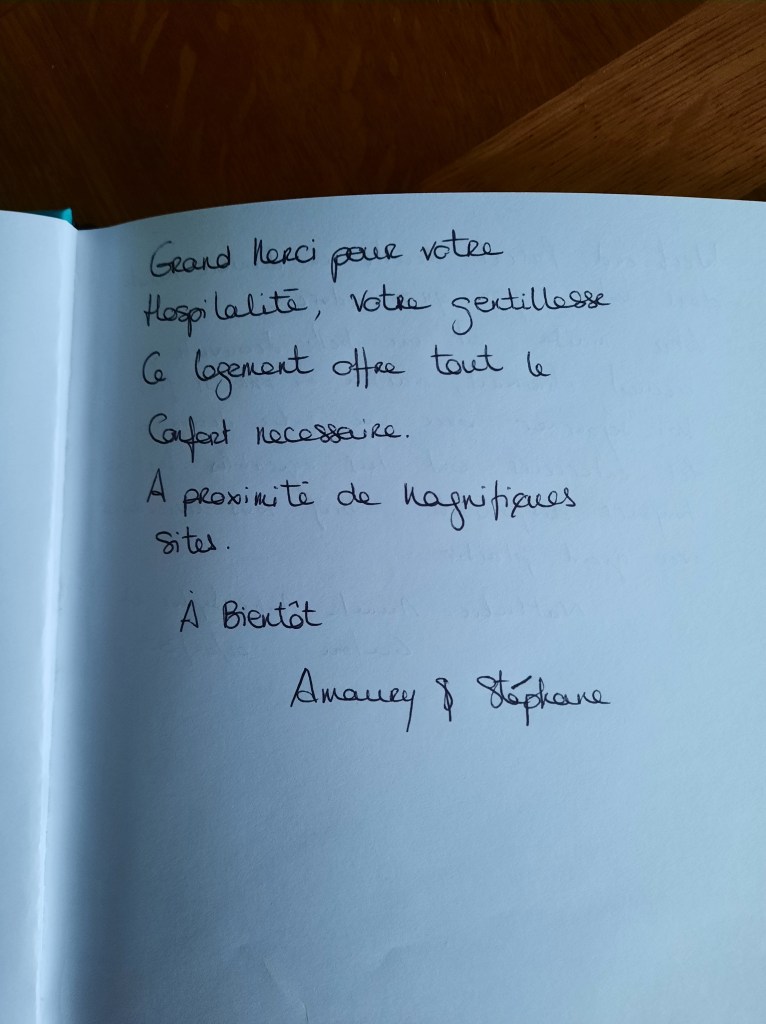 Grand Merci pour votre
Hospitalité, votre gentillesse
Ce logement offre tout le
Confort necessaire.
A proximité de Magnifiques
sites.
À Bientôt
Amaury & Stéphane